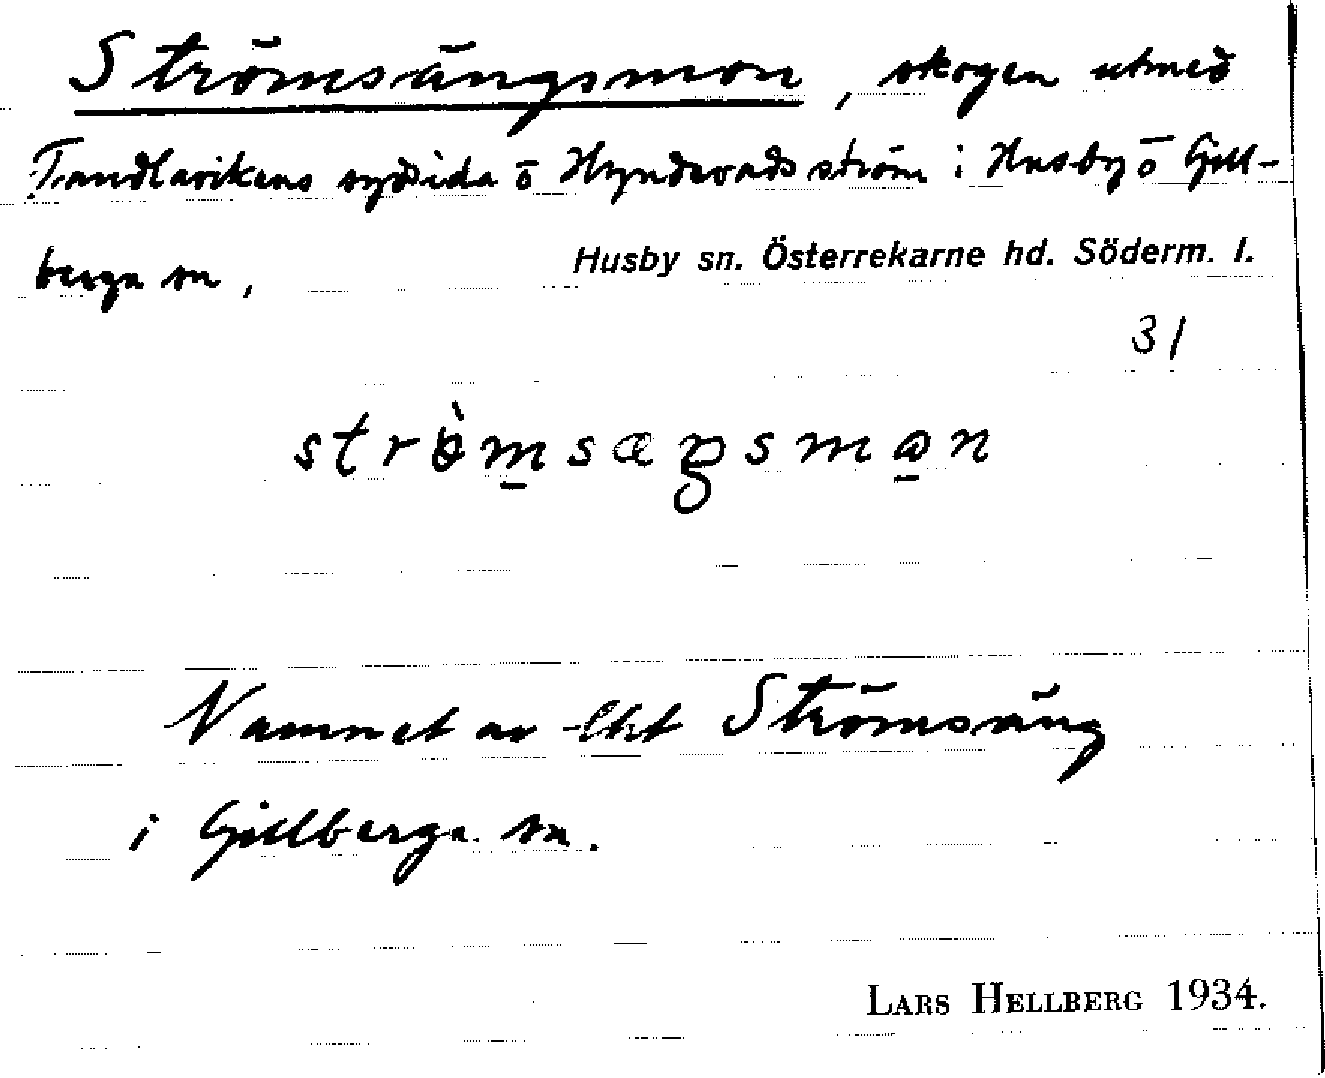 Strömsängsmon, skogen utmed
Tandlavikens sydsida ö Hyndevadsström i Husby o Gill-
berga sn,
Husby sn. Österrekarne hd. Söderm. l.
31
strö̀m̲sæŋsmo̲n
Namnet av lht Strömsäng
i Gillberga sn.
LARS HELLBERG 1934.